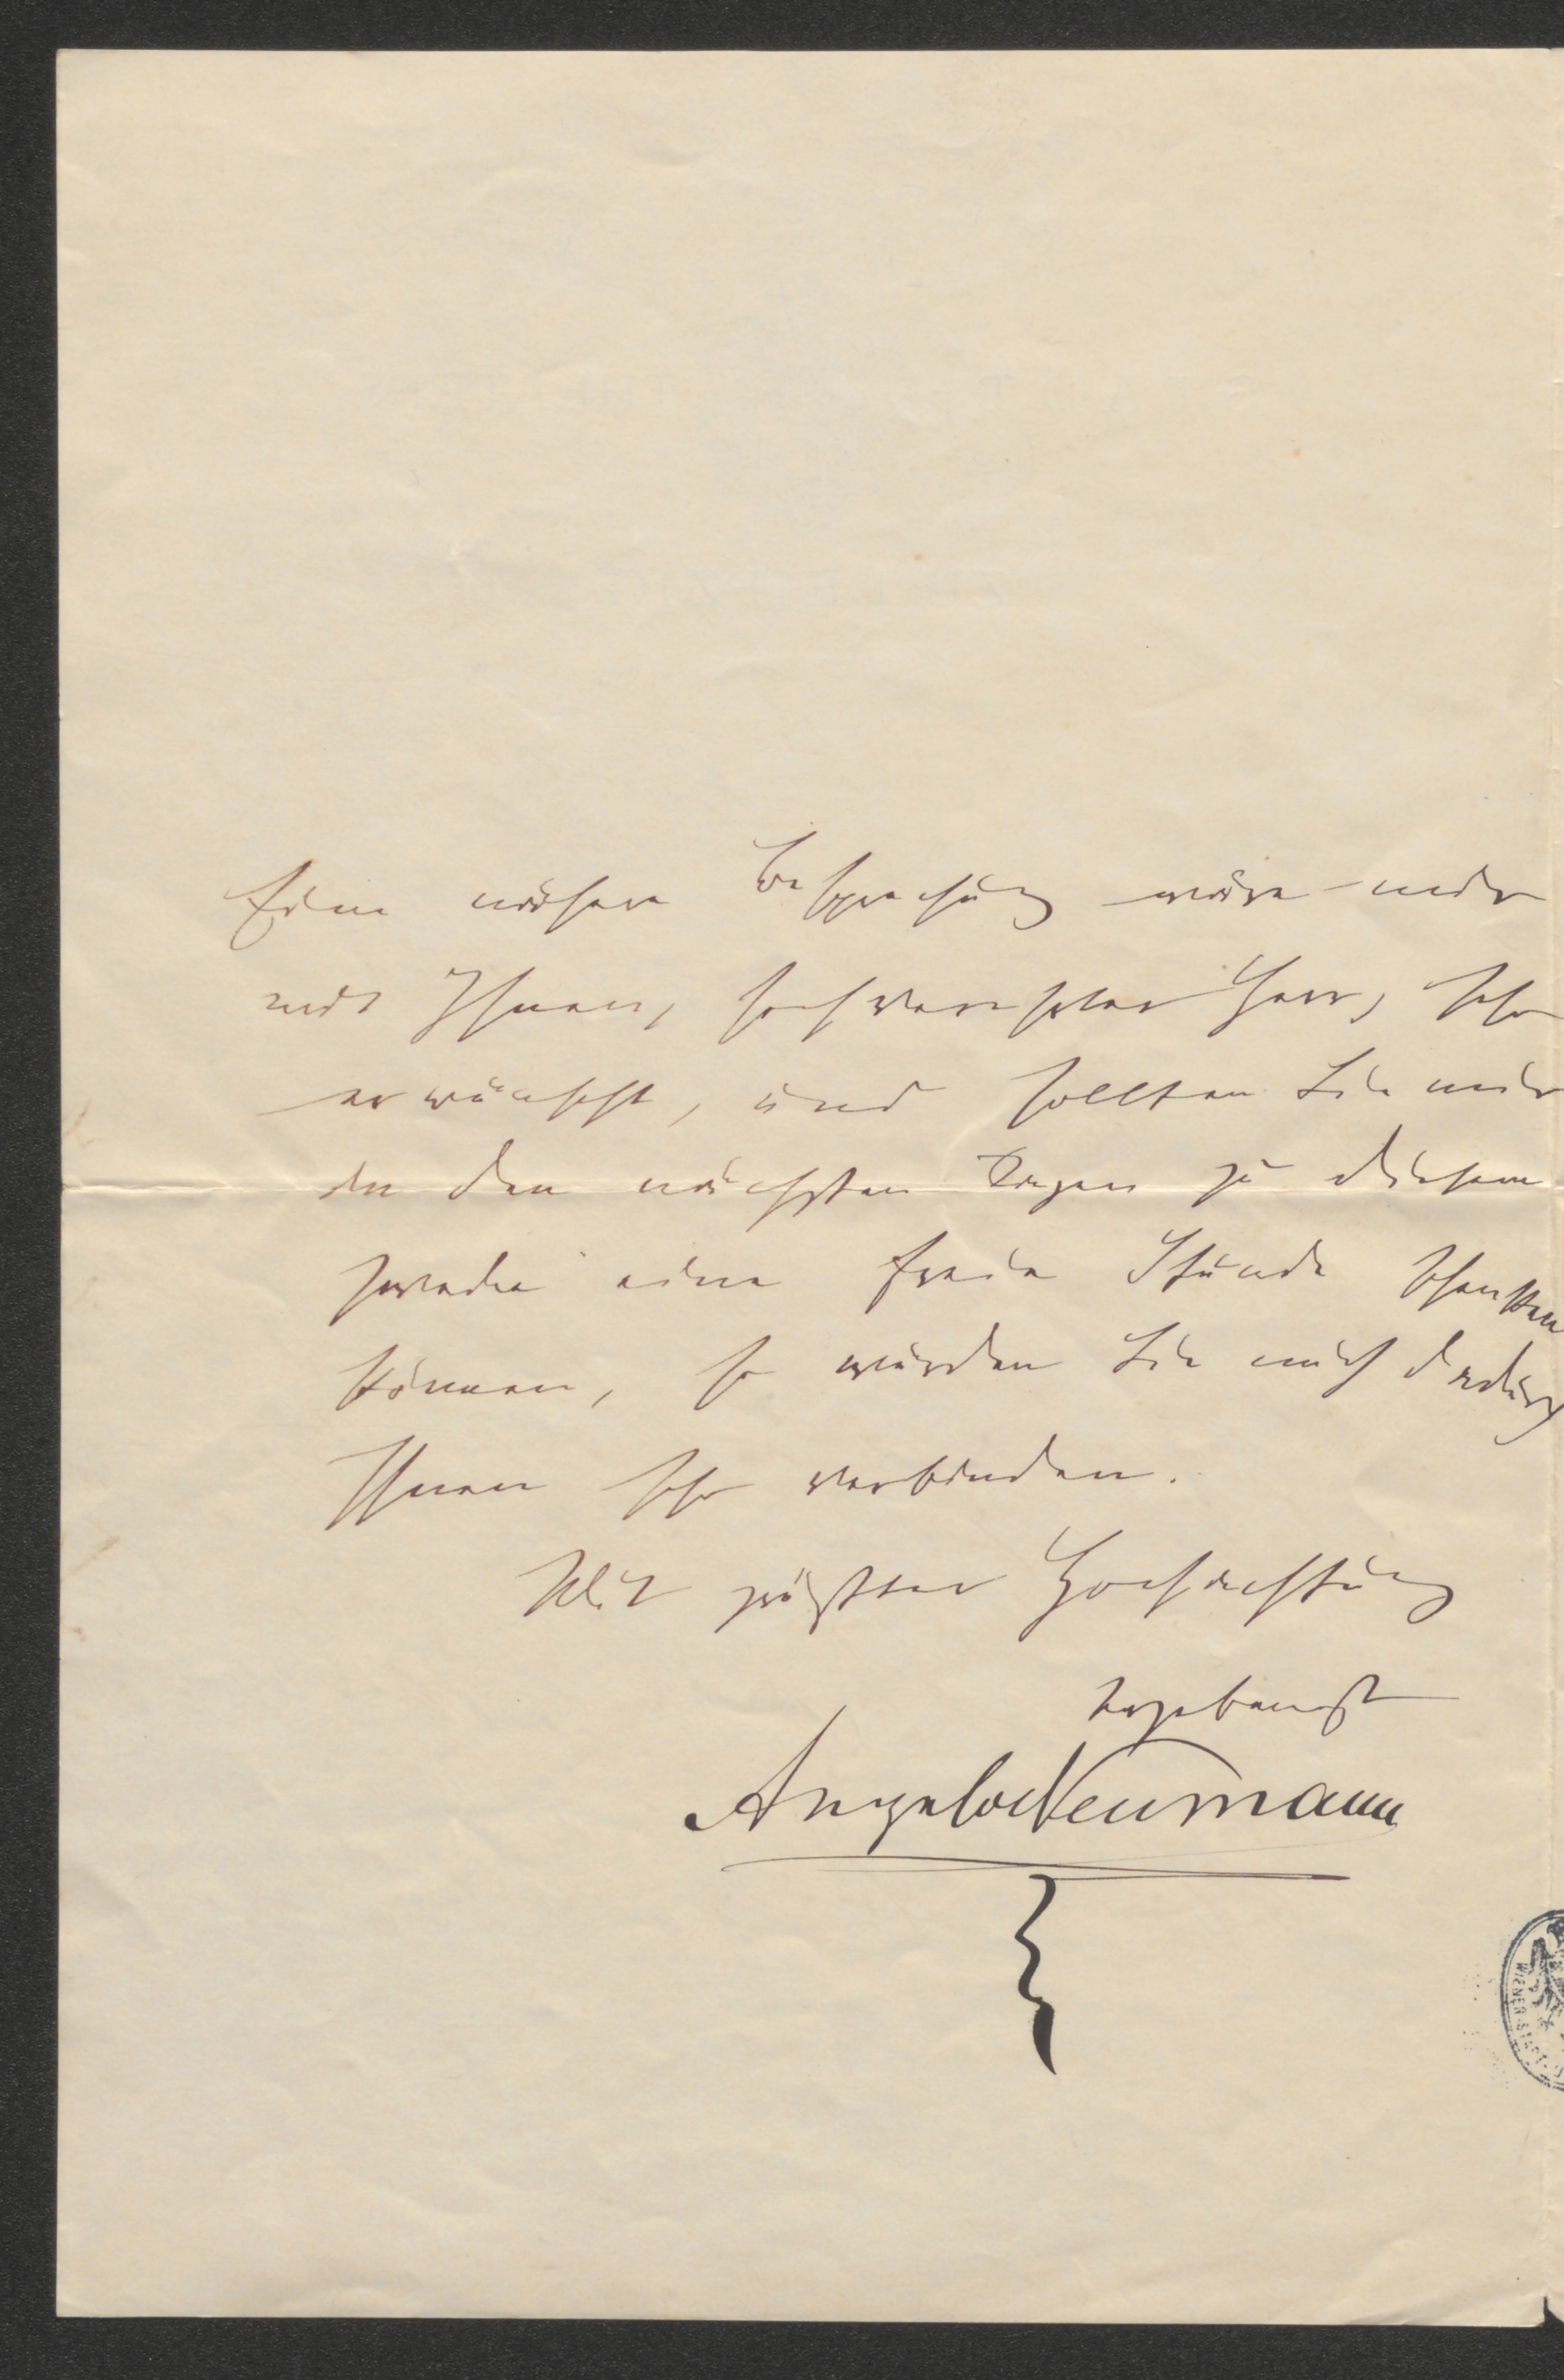 Eine nähere Besprechung wäre mir
mit Ihnen, hochverehrter Herr, sehr
erwünscht, und sollten Sie mir
in den nächsten Tagen zu diesem
Zwecke eine freie Stunde schenken
können, so würden Sie mich dadurch
Ihnen sehr verbinden.
Mit größter Hochachtung
ergebenst
Angelo Neumann
WIENER STADT